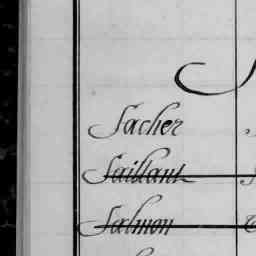 Sacher
Saillant
Salmon